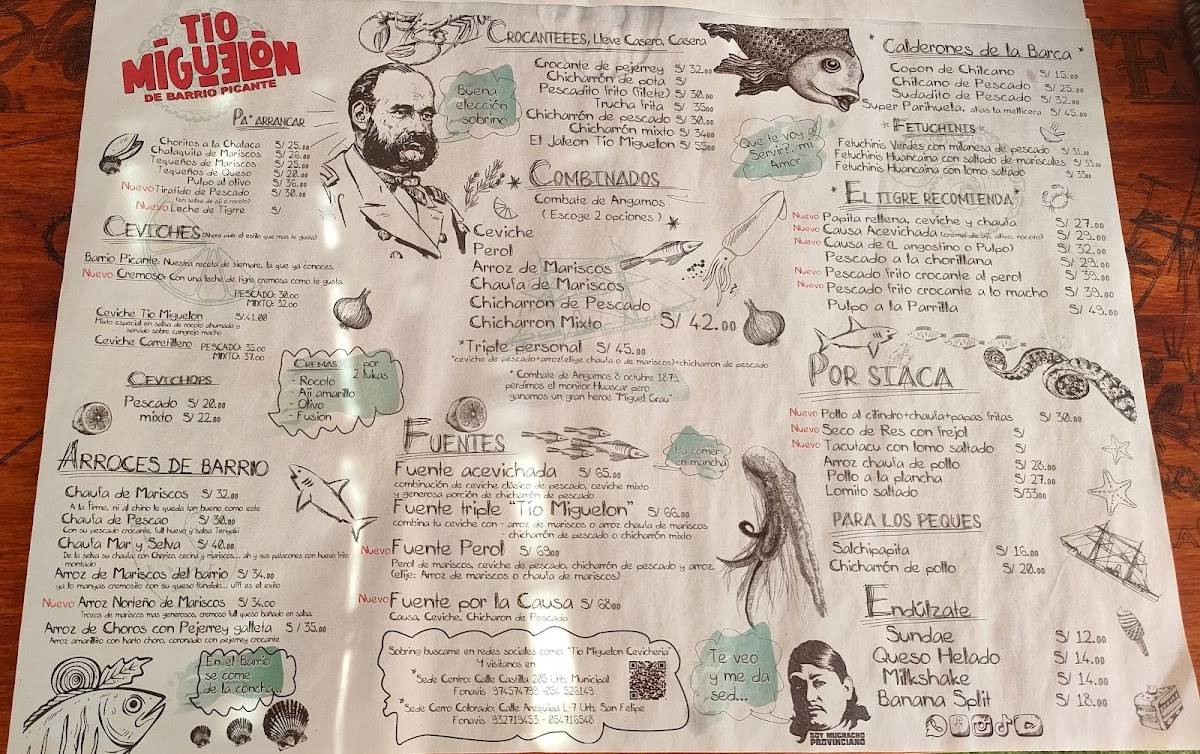 TIO
MIGUELÓN
DE BARRIO PICANTE
PA' ARRANCAR
Choritos a la Chalaca S/ 25.00
Chalaquita de Mariscos S/ 26.00
Tequeños de Mariscos S/ 25.00
Tequeños de Queso S/ 20.00
Pulpo al olivo S/ 36.00
Nuevo Tiratido de Pescado S/ 30.00
(en salsa de aji o rocoto)
Nuevo Leche de Tigrre S/
CEVICHES (Ahora pide el estilo que mas te gusta)
Barrio Picante: Nuestra receta de siempre, la que ya conoces.
Nuevo Cremoso: Con una leche de tigre cremosa como te gusta
PESCADO: 30.00
MIXTO: 32.00
Ceviche Tio Miguelon S/.41.00
Mixto especial en salsa de rocoto ahumado y
servido sobre cangrejo macho
Ceviche Carretillero PESCADO: 35.00
MIXTO: 37.00
CEVICHOPS
Pescado S/ 20.00
mixto S/ 22.00
CREMAS por 2 lukas
- Rocoto
- Aji amarillo
- Olivo
- Fusion
ARROCES DE BARRIO
Chaufa de Mariscos S/ 32.00
A la firme, ni al chino le queda tan bueno como este
Chaufa de Pescao S/ 30.00
Con su pescado crocante, full huevo y salsa Teriyaki
Chaufa Mar y Selva S/ 40.00
De la selva su chaufa, con Chorizo, cecina y mariscos... ah y sus patacones con huevo frito
montado
Arroz de Mariscos del barrio S/ 34.00
ya lo manyas cremosito con su queso fundido... uffff es el exito
Nuevo Arroz Norteño de Mariscos S/ 34.00
Trozos de mariscos mas generosos, cremoso full queso bañado en salsa
Arroz de Choros con Pejerrey galleta S/ 35.00
Arroz amarillito con harto choro, coronado con pejerrey crocante
En el barrio
se come
de la concha
Buena
elección
sobrino
CROCANTEEES, Lleve Casero, Casera
Crocante de pejerrey S/ 32.00
Chicharrón de pota S/
Pescadito frito (filete) S/ 30.00
Trucha frita S/ 35.00
Chicharrón de pescado S/ 30.00
Chicharrón mixto S/ 34.00
El Jaleon Tio Miguelon S/ 55.00
COMBINADOS
Combate de Angamos
( Escoge 2 opciones )
Ceviche
Perol
Arroz de Mariscos
Chaufa de Mariscos
Chicharron de Pescado
Chicharron Mixto S/ 42.00
*Triple personal S/ 45.00
*ceviche de pescado+arroz(elige chaufa o de mariscos)+chicharron de pescado
* Combate de Angamos 8 octubre 1879,
perdimos el monitor Huascar pero
ganamos un gran heroe "Miguel Grau"
FUENTES
Pa comer
en mancha
Fuente acevichada S/ 65.00
combinación de ceviche clásico de pescado, ceviche mixto
y generosa porción de chicharrón de pescado
Fuente triple "Tío Miguelon" S/ 66.00
combina tu ceviche con - arroz de mariscos o arroz chaufa de mariscos
- chicharrón de pescado o chicharrón mixto
Nuevo Fuente Perol S/ 69.00
Perol de mariscos, ceviche de pescado, chicharrón de pescado y arroz
(elije: Arroz de mariscos o chaufa de mariscos)
Nuevo Fuente por la Causa S/ 68.00
Causa, Ceviche, Chicharon de Pescado
Sobrino buscame en redes sociales como: "Tio Miguelon Cevicheria"
Y visitanos en
*Sede Centro: Calle Castilla 205 Urb. Municipal
Fonavis 974574788 -054 526149
*Sede Cerro Colorado: Calle Arequipa L-7 Urb. San Felipe
Fonavis 932719453 - 054716548
Te veo
y me da
sed...
SOY MUCHACHO
PROVINCIANO
Que te voy a
Servir?, mi
Amor
* Calderones de la Barca *
Copon de Chilcano S/ 15.00
Chilcano de Pescado S/ 25.00
Sudadito de Pescado S/ 32.00
Super Parihuela, alias la mellicera S/ 45.00
* FETUCHINIS *
Fetuchinis Verdes con milanesa de pescado S/ 31.00
Fetuchinis Huancaina con saltado de mariscales S/ 33.00
Fetuchinis Huancaina con lomo saltado S/ 33.00
* EL TIGRE RECOMIENDA *
Nuevo Papita rellena, ceviche y chaufa S/ 27.00
Nuevo Causa Acevichada (crema de aji, olivo, rocoto) S/ 29.00
Nuevo Causa de (L angostino o Pulpo) S/ 32.00
Pescado a la chorillana S/ 29.00
Nuevo Pescado frito crocante al perol S/ 39.00
Nuevo Pescado frito crocante a lo macho S/ 39.00
Pulpo a la Parrilla S/ 49.00
POR SIACA
Nuevo Pollo al cilindro+chaufa+papas fritas S/ 30.00
Nuevo Seco de Res con frejol S/
Nuevo Tacutacu con lomo saltado S/
Arroz chaufa de pollo S/ 28.00
Pollo a la plancha S/ 27.00
Lomito saltado S/33.00
PARA LOS PEQUES
Salchipapita S/ 16.00
Chicharrón de pollo S/ 20.00
Endúlzate
Sundae S/ 12.00
Queso Helado S/ 14.00
Milkshake S/ 14.00
Banana Split S/ 18.00